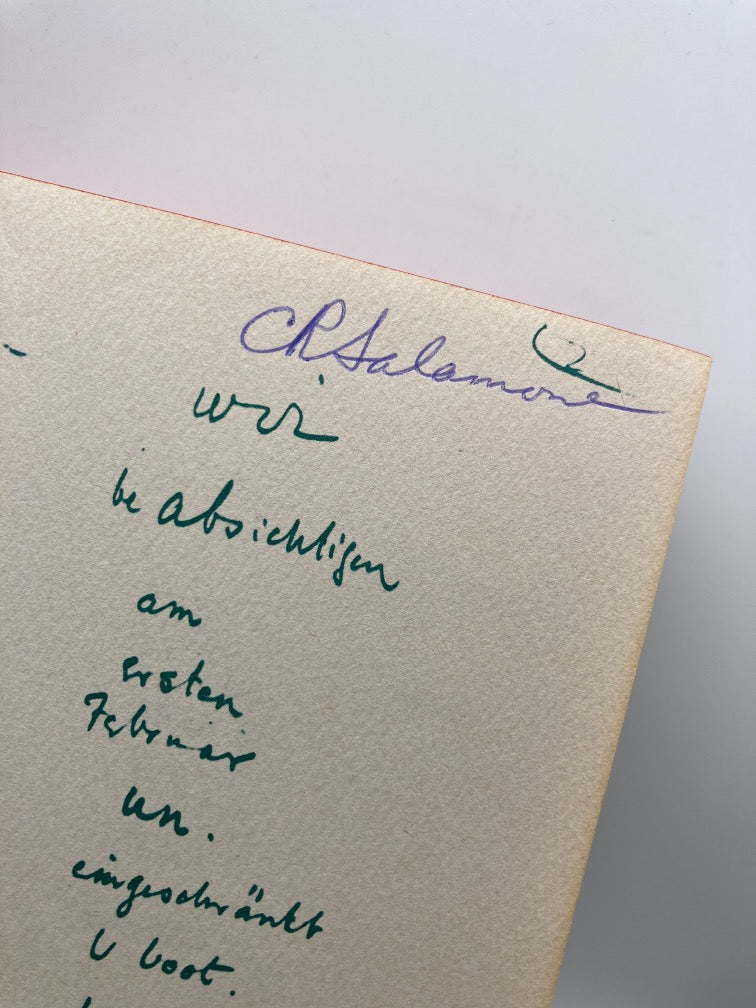 CRSalamone
2
wir
be absichtigen
am
ersten
Februar
un.
eingeschränkt
U boot.